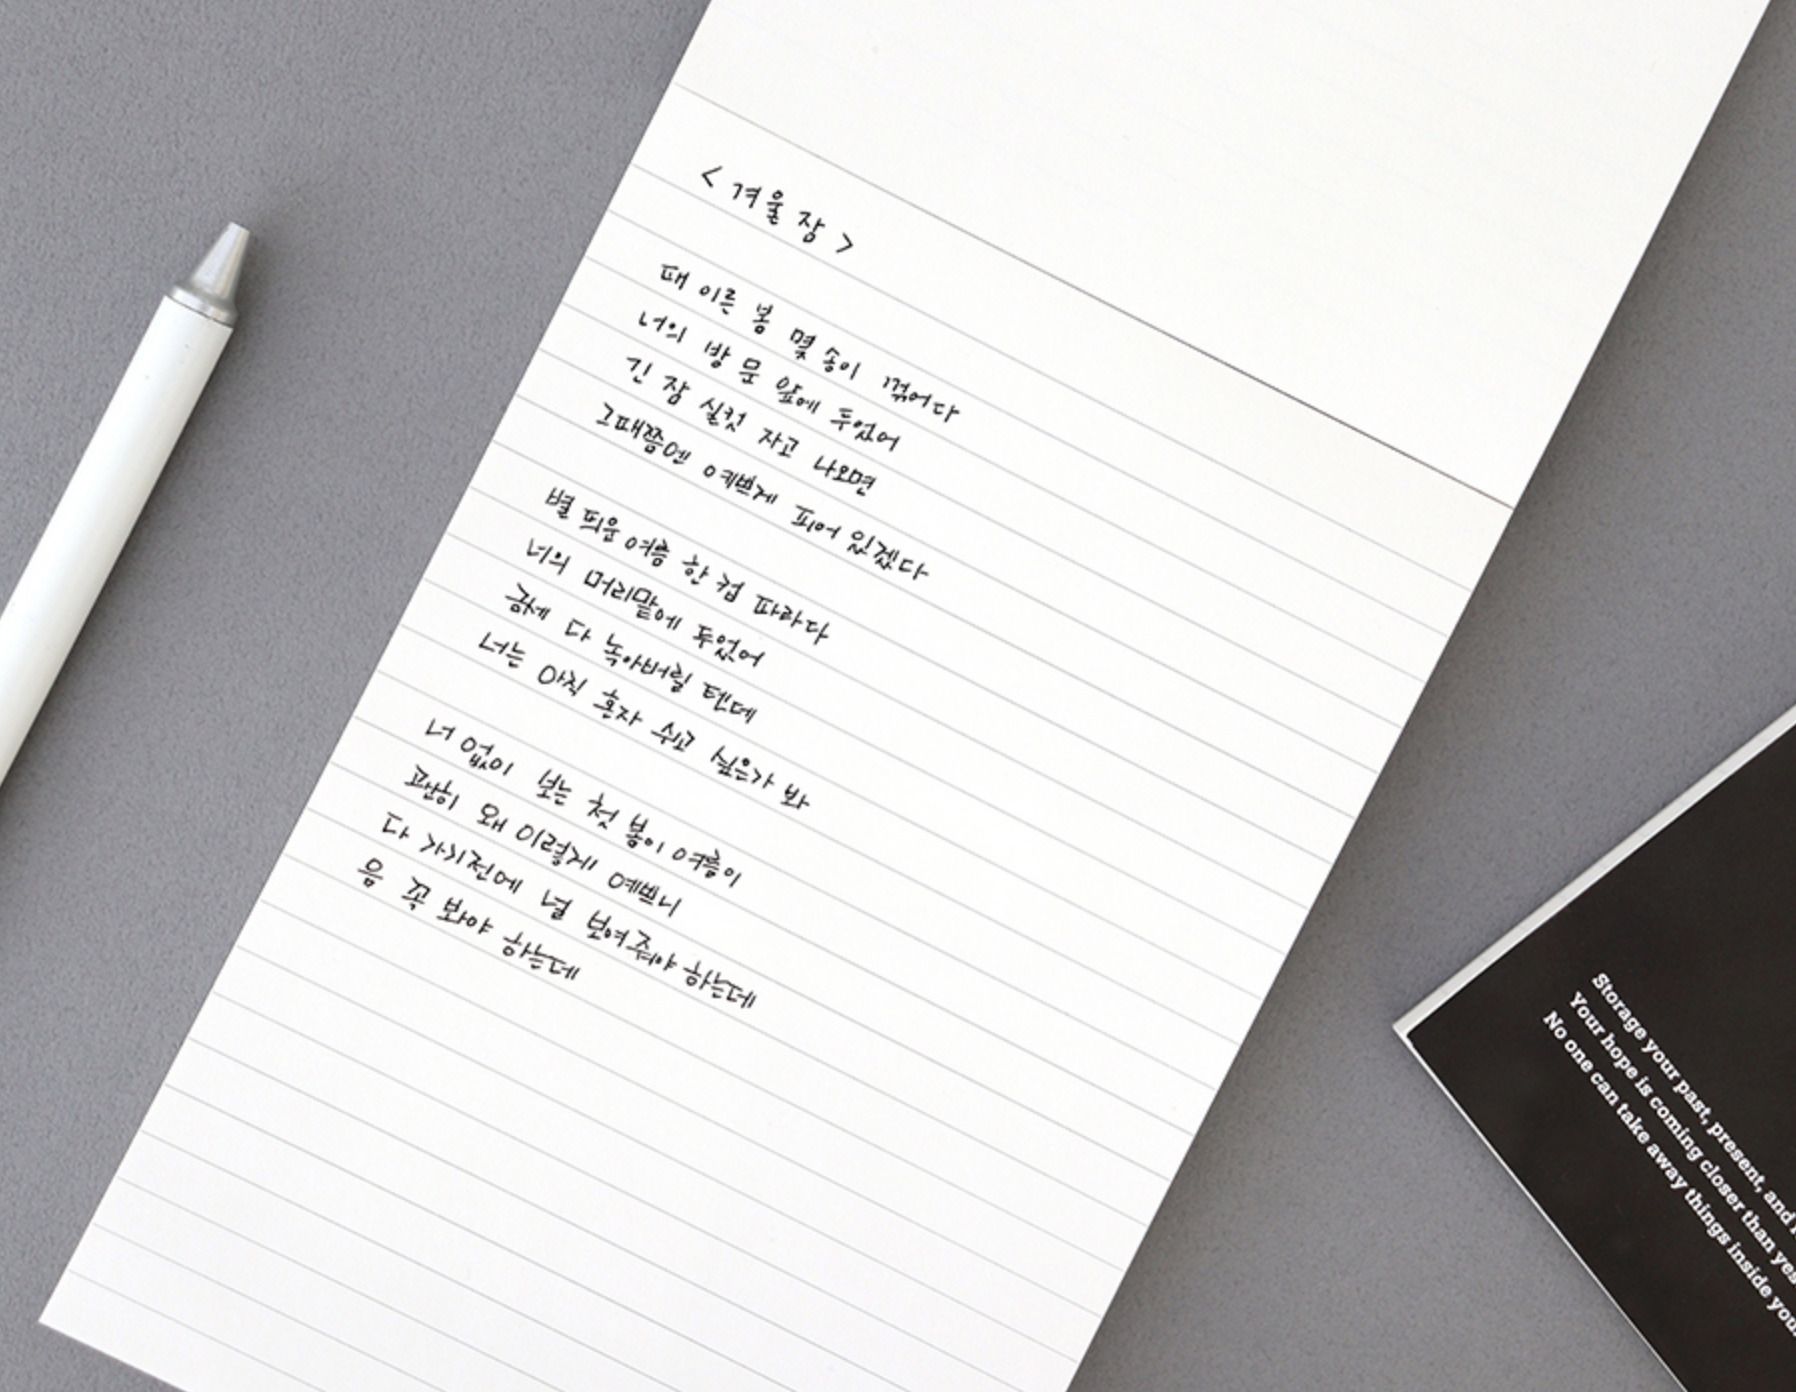 < 겨울 잠 >
때 이른 봄 몇 송이 꺾어다
너의 방 문 앞에 두었어
긴 잠 실컷 자고 나오면
그때쯤엔 예쁘게 피어 있겠다
별 띄운 여름 한 컵 따라다
너의 머리맡에 두었어
금세 다 녹아버릴 텐데
너는 아직 혼자 쉬고 싶은가 봐
너 없이 보는 첫 봄이 여름이
괜히 왜 이렇게 예쁘니
다 가기전에 널 보여줘야 하는데
음 꼭 봐야 하는데
Storage your past, present, and
Your hope is coming closer than yes
No one can take away things inside you